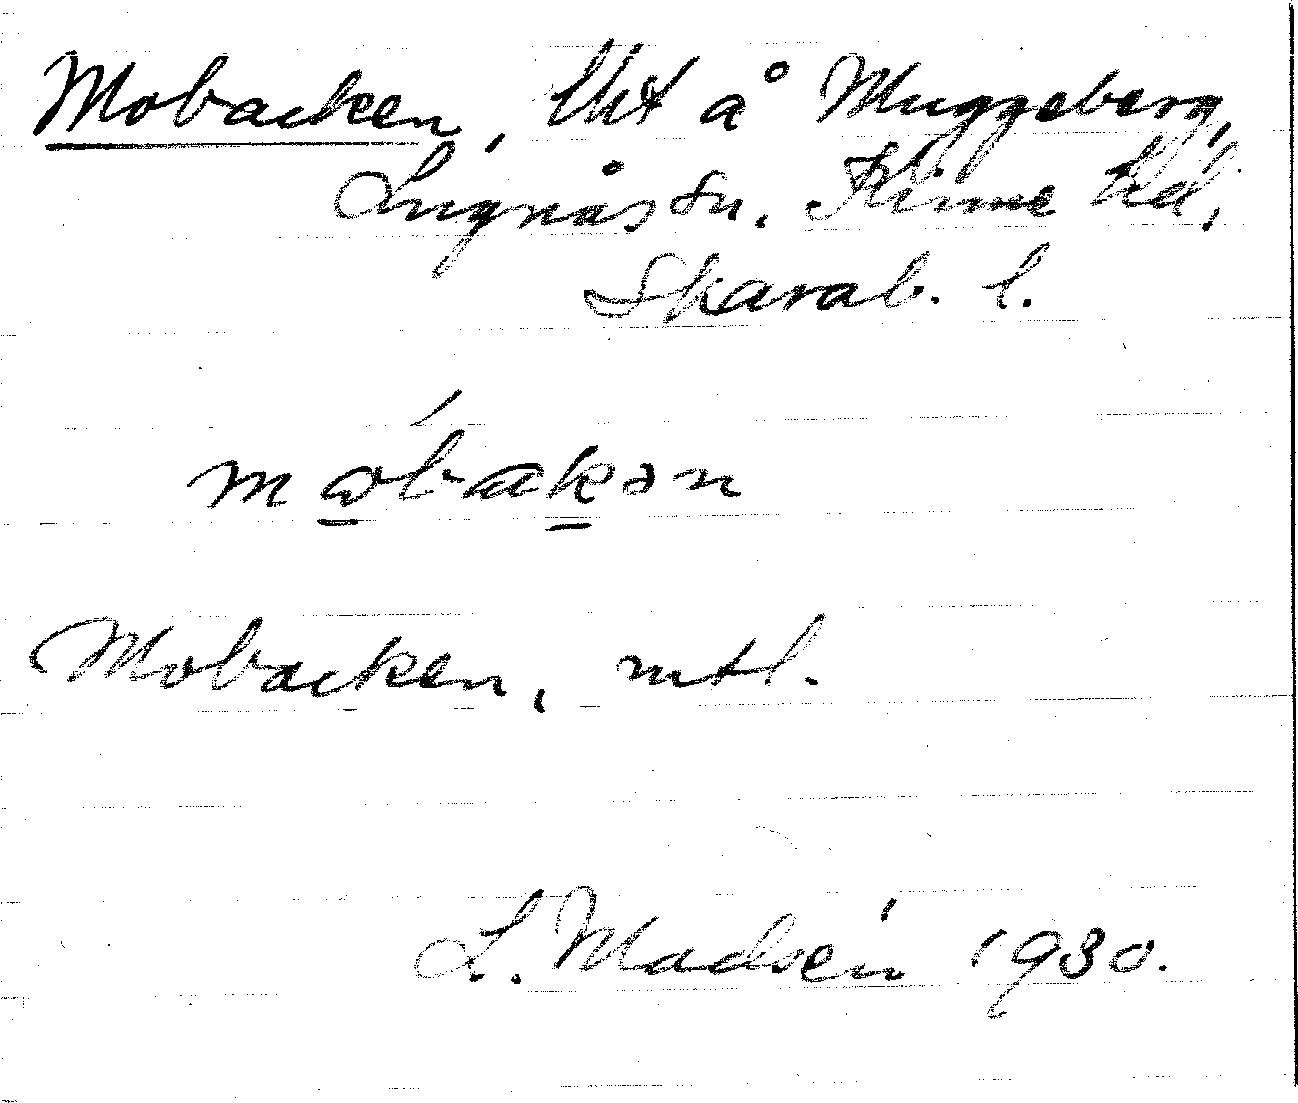 Mobacken, lht å Muggeberg,
Lugnås sn. Kinne hd,
Skarab. l.
mωbakən
Mobacken, mtl.
L. Madsén 1930.